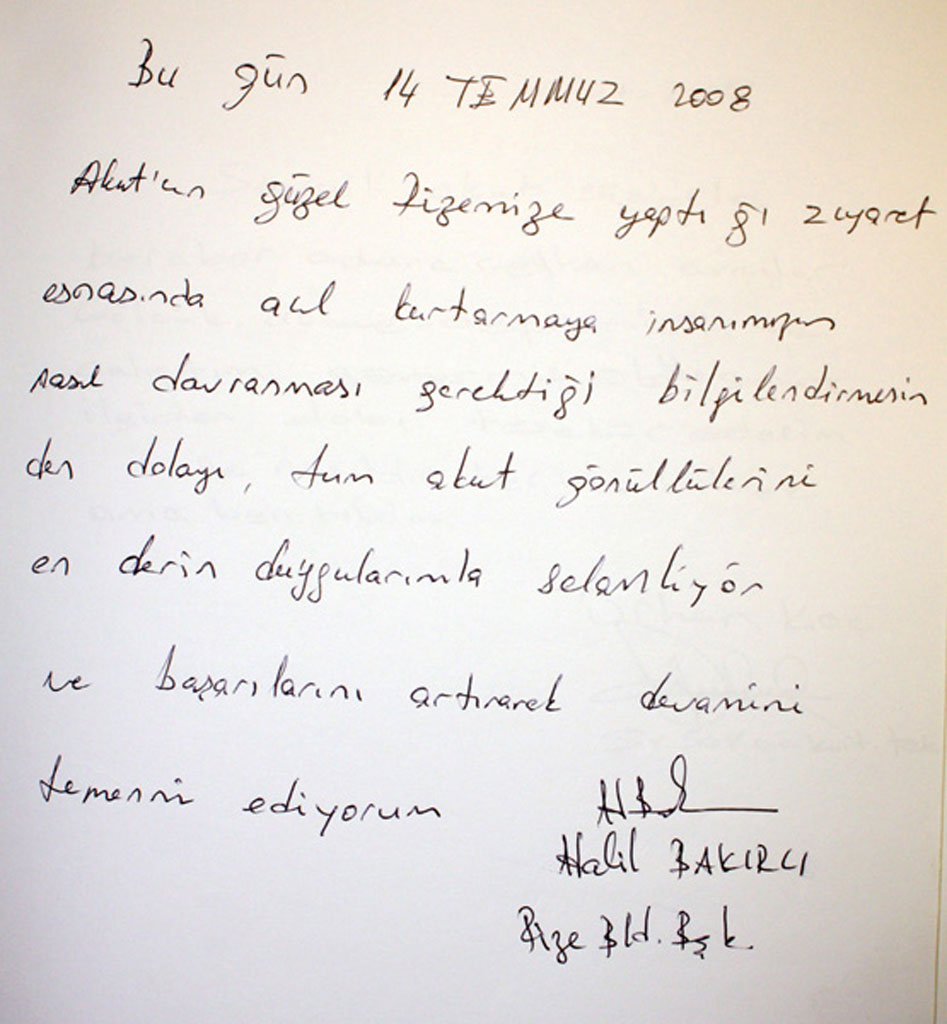 Bu gün 14 TEMMUZ 2008
Akut'un güzel Rizemize yaptığı ziyaret
esnasında acil kurtarmaya insanımızın
nasıl davranması gerektiği bilgilendirmesin
den dolayı, tüm akut gönüllülerini
en derin duygularımla selamlıyor
ve başarılarını artırarak devamini
temenni ediyorum
Halil BAKIRCI
Rize Bld. Bşk.